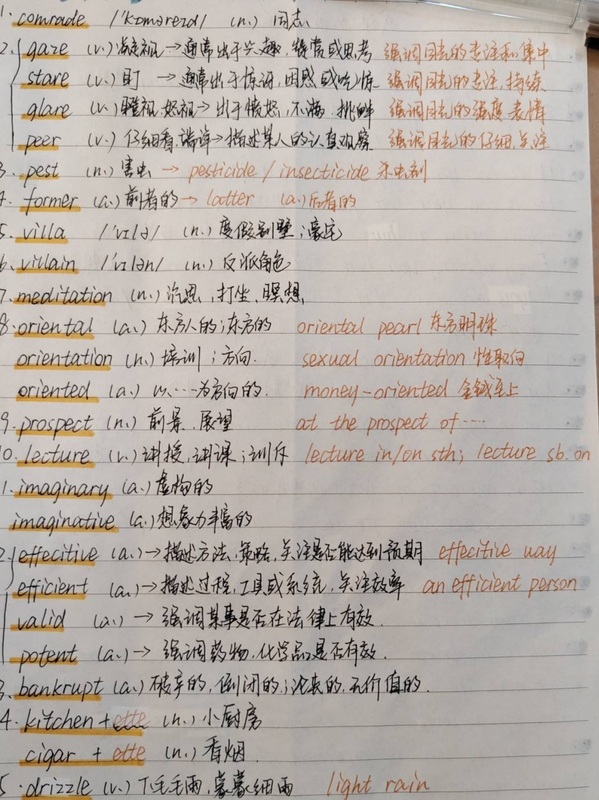 1. comrade /'kɒməreɪd/ (n.) 同志
2. gaze (v.) 凝视→通常出于兴趣,赞赏或思考 强调目光的专注和集中
stare (v.) 盯 → 通常出于惊讶,困惑或吃惊 强调目光的专注,持续
glare (v.) 瞪视,怒视→出于愤怒,不满,挑衅 强调目光的强度,表情
peer (v.) 仔细看,端详→描述某人的认真观察 强调目光的仔细,关注
3. pest (n.) 害虫 → pesticible / insecticide 杀虫剂
4. former (a.) 前者的→ latter (a.)后者的
5. villa /'vɪlə/ (n.) 度假别墅;豪宅
6. villain /'vɪlən/ (n.) 反派角色
7. meditation (n.) 沉思,打坐,冥想
8. oriental (a.) 东方人的;东方的 oriental pearl 东方明珠
orientation (n.) 培训;方向. sexual orientation 性取向
oriented (a.) 以……为方向的. money-oriented 金钱至上
9. prospect (n.) 前景,展望 at the prospect of……
10. lecture (v.) 讲授,讲课;训斥 lecture in/on sth; lecture sb. on
1. imaginary (a.) 虚构的
imaginative (a.) 想象力丰富的
2. effecitive (a.)→描述方法,策略,关注是否能达到预期 effecitive way
efficient (a.)→描述过程,工具或系统,关注效率 an efficient person
valid (a.) → 强调某事是否在法律上有效.
potent (a.) → 强调药物,化学品是否有效.
3. bankrupt (a.) 破产的,倒闭的;沦丧的,无价值的.
4. kitchen + ette (n.) 小厨房
cigar + ette (n.) 香烟.
5. drizzle (v.) 下毛毛雨,蒙蒙细雨 light rain